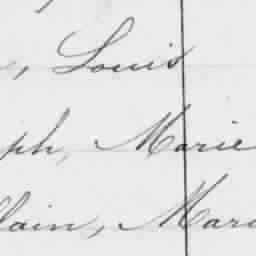 , Louis
ph, Marie
lain, Mari